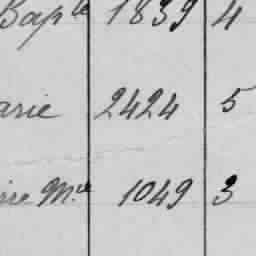 Bapte 1839 4
arie 2424 5
Mce 1049 3